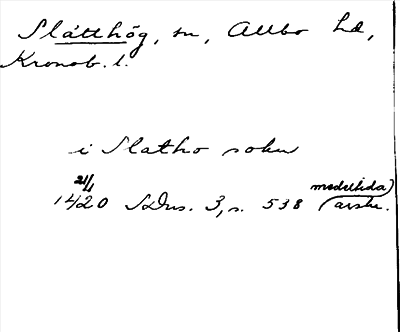 Slätthög, sn, Allbo hd,
Kronob. l.
i Slatho sokn
21/1
1420 SDns. 3, s. 538 (medeltida
avskr.)